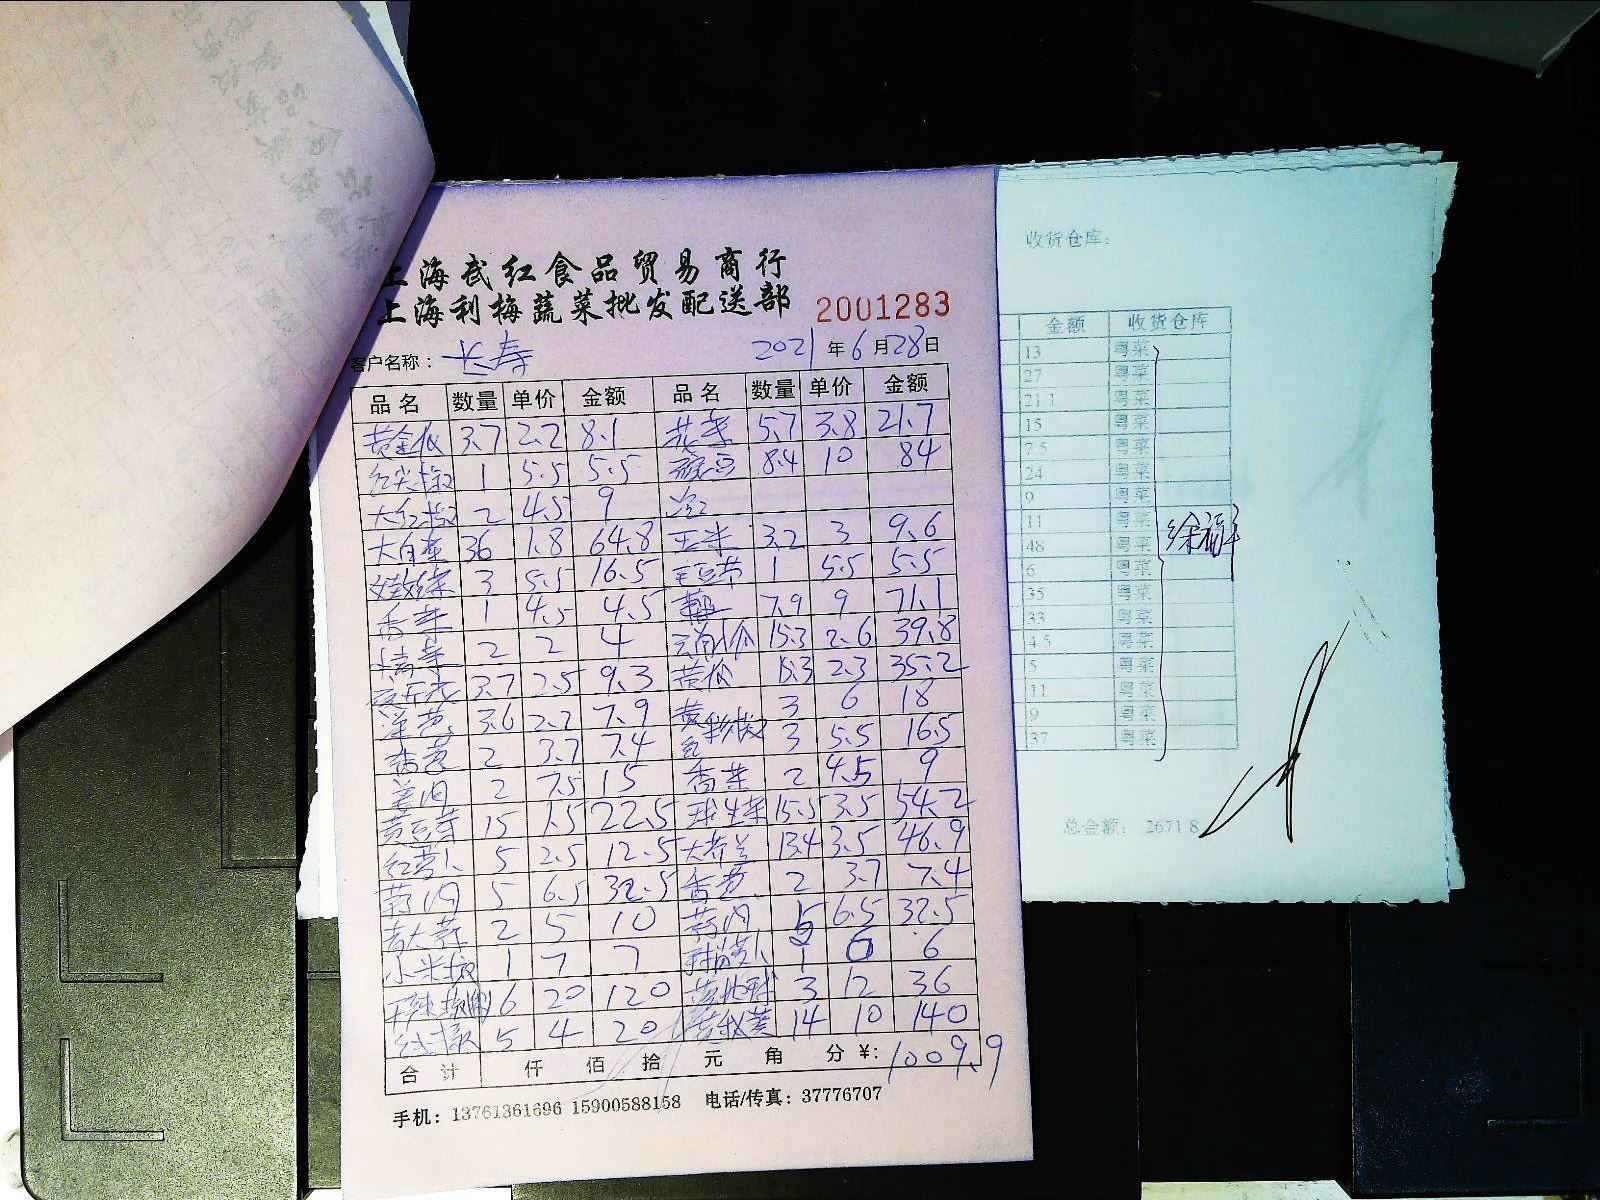 上海武红食品贸易商行
上海利梅蔬菜批发配送部 2001283
客户名称： 长寿 2021 年 6 月 28 日
品名 数量 单价 金额 品名 数量 单价 金额
黄金瓜 3.7 2.2 8.1 花菜 5.7 3.8 21.7
红尖椒 1 5.5 5.5 豌豆 8.4 10 84
大红椒 2 4.5 9
大白菜 36 1.8 64.8 玉米 3.2 3 9.6
娃娃菜 3 5.5 16.5 1 5.5 5.5
香菜 1 4.5 4.5 7.9 9 71.1
2 2 4 15.3 2.6 39.8
3.7 2.5 9.3 15.3 2.3 35.2
洋葱 3.6 2.2 7.9 黄 3 6 18
香葱 2 3.7 7.4 红彩椒 3 5.5 16.5
姜肉 2 7.5 15 香菜 2 4.5 9
黄豆芽 15 1.5 22.5 球生菜 15.5 3.5 54.2
红萝卜 5 2.5 12.5 大芥兰 13.4 3.5 46.9
蒜肉 5 6.5 32.5 香葱 2 3.7 7.4
青大蒜 2 5 10 蒜肉 5 6.5 32.5
小米椒 1 7 7 1 6 6
6 20 120 3 12 36
5 4 20 14 10 140
合计 仟 佰 拾 元 角 分 ¥: 1009.9
手机：13761361696 15900588158 电话/传真：37776707
收货仓库：
金额 收货仓库
13 粤菜
27 粤菜
21 1 粤菜
15 粤菜
7 5 粤菜
24 粤菜
9 粤菜
11 粤菜
48 粤菜
6 粤菜
35 粤菜
33 粤菜
4 5 粤菜
5 粤菜
11 粤菜
9 粤菜
37 粤菜
总金额： 2671 8